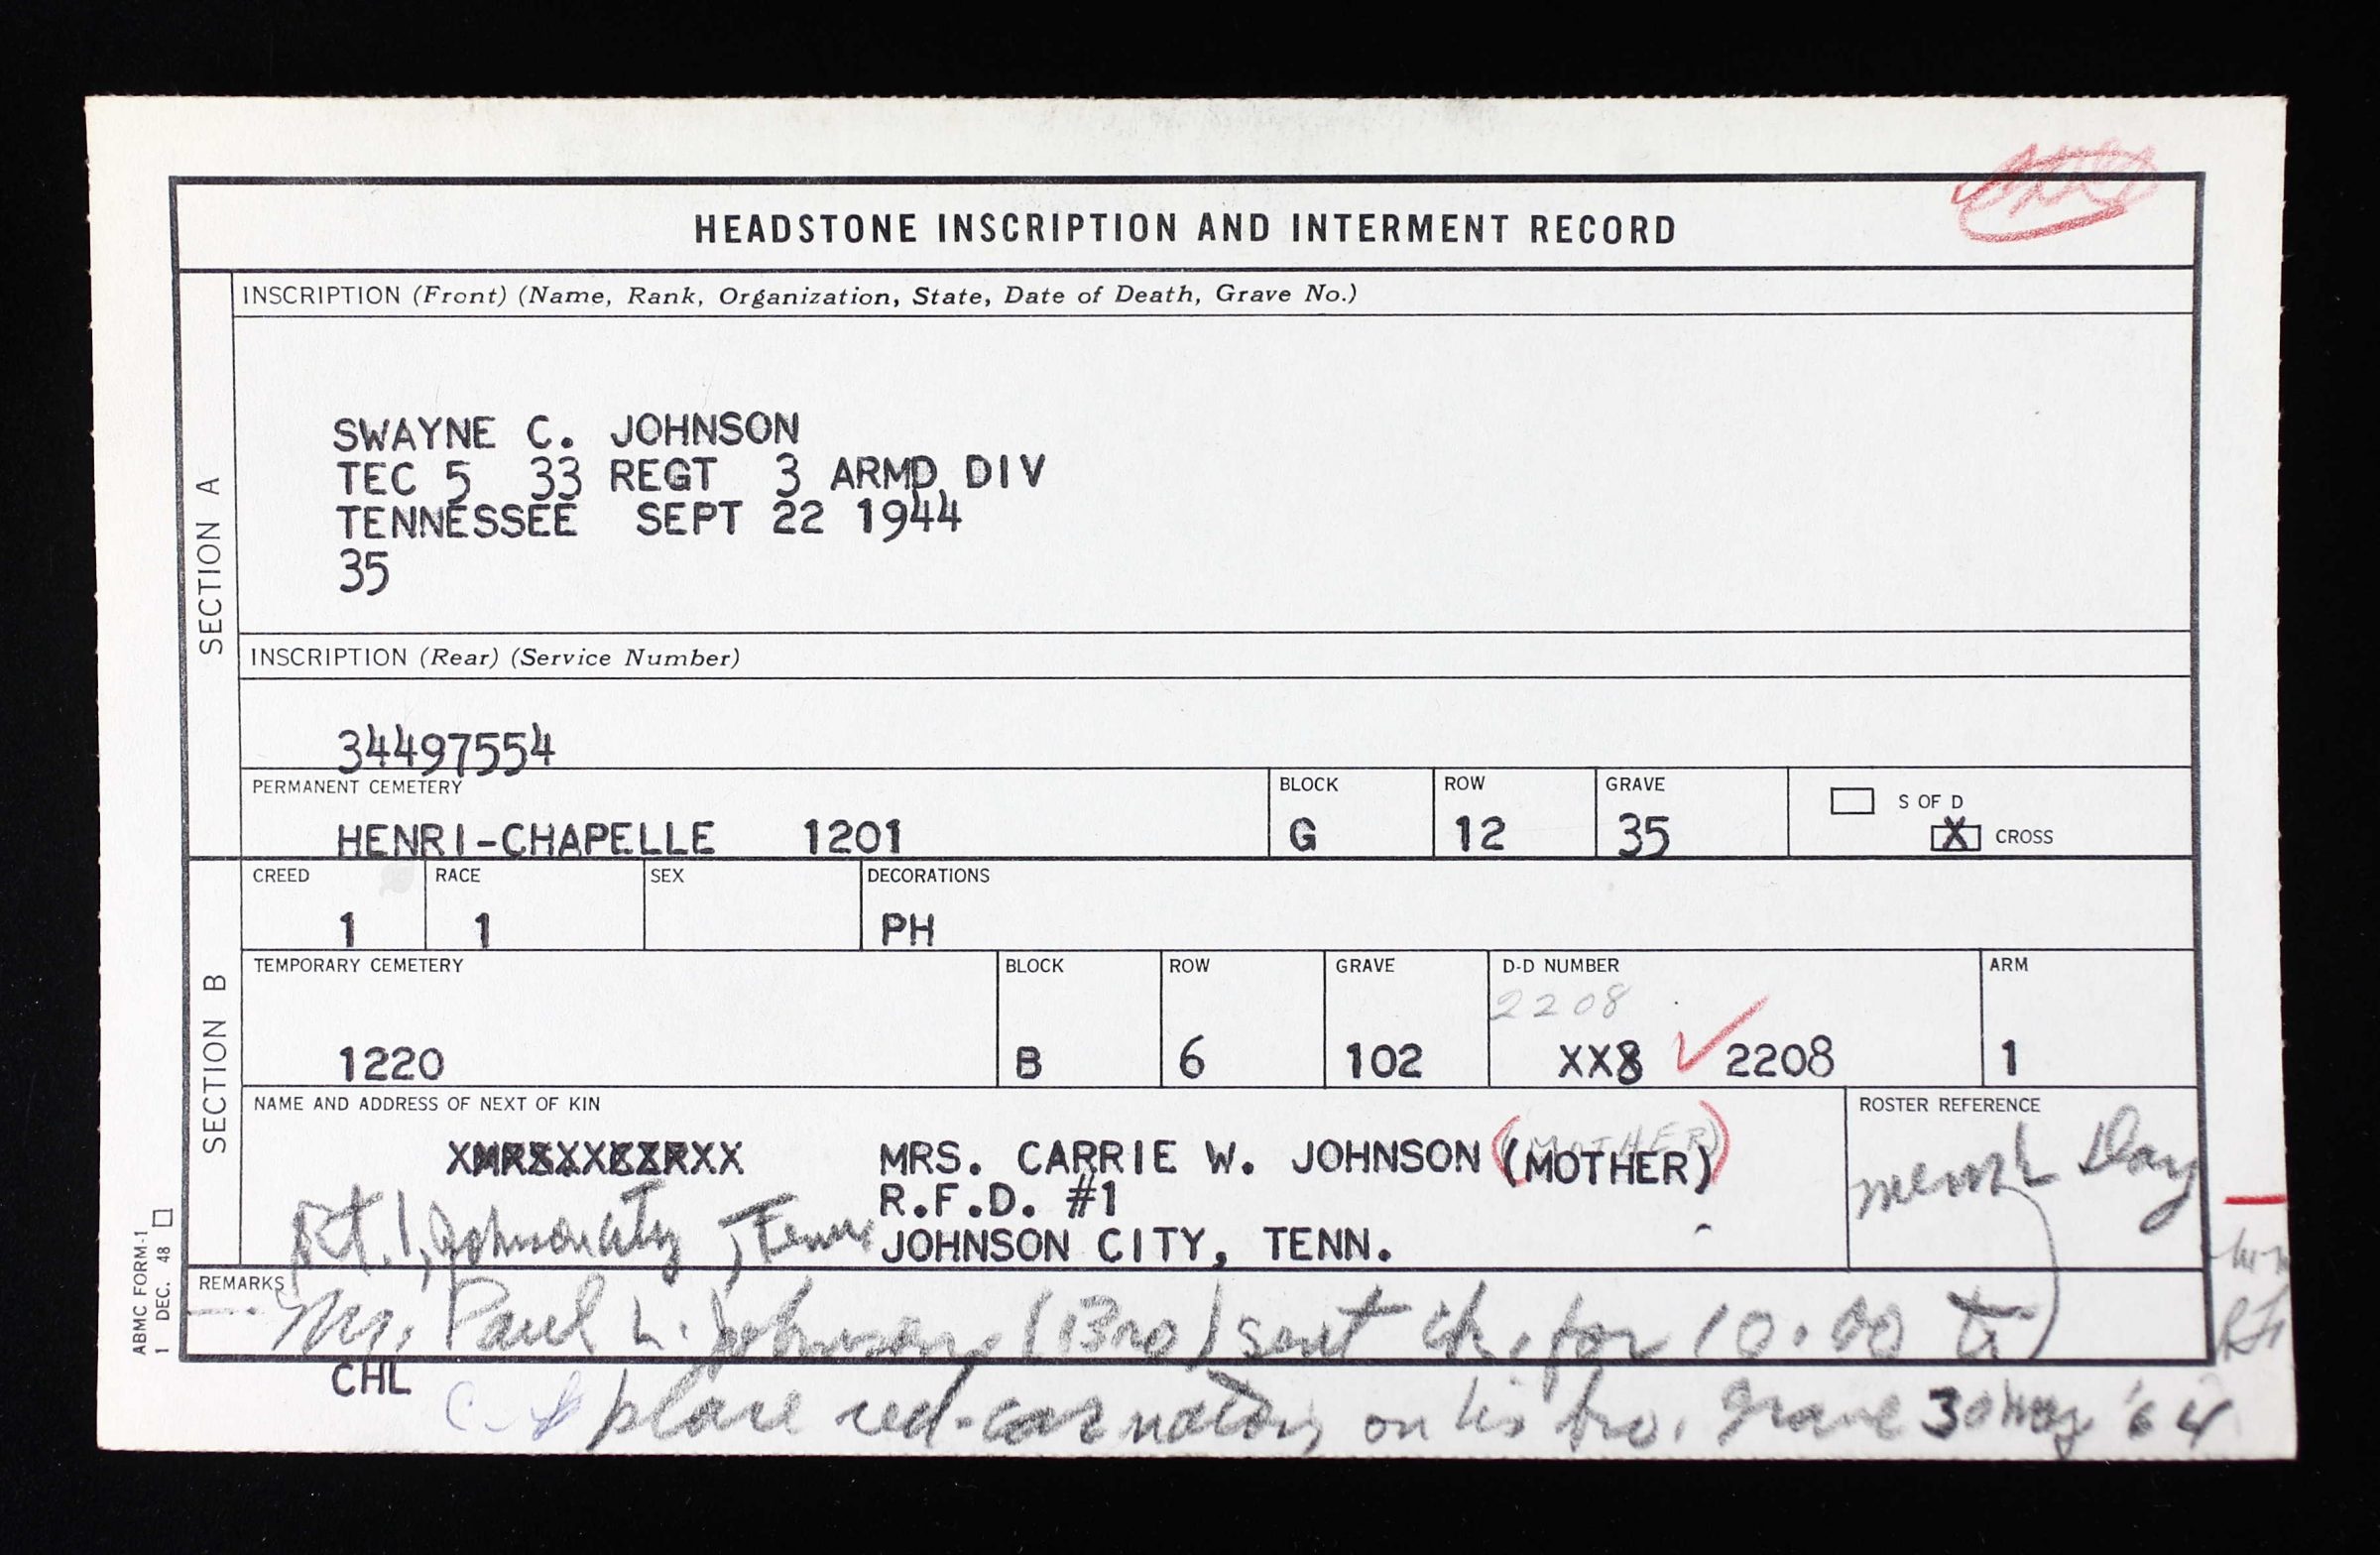 HEADSTONE INSCRIPTION AND INTERMENT RECORD
SECTION A
INSCRIPTION (Front) (Name, Rank, Organization, State, Date of Death, Grave No.)
SWAYNE C. JOHNSON
TEC 5 33 REGT 3 ARMD DIV
TENNESSEE SEPT 22 1944
35
INSCRIPTION (Rear) (Service Number)
34497554
PERMANENT CEMETERY BLOCK ROW GRAVE
HENRI-CHAPELLE 1201 G 12 35
S OF D
X CROSS
SECTION B
CREED RACE SEX DECORATIONS
1 1 PH
TEMPORARY CEMETERY BLOCK ROW GRAVE D-D NUMBER ARM
2208
1220 B 6 102 XX8 2208 1
NAME AND ADDRESS OF NEXT OF KIN ROSTER REFERENCE
(MOTHER)
MRS. CARRIE W. JOHNSON (MOTHER)
R.F.D. #1
JOHNSON CITY, TENN.
Rt. 1, Johnson City, Tenn.
Day
REMARKS
Mr. Paul L. Johnson (Bro) sent ck. for 10.00 to
CHL
place red carnations on his bro. grave 30 May '64
ABMC FORM-1
1 DEC. 48